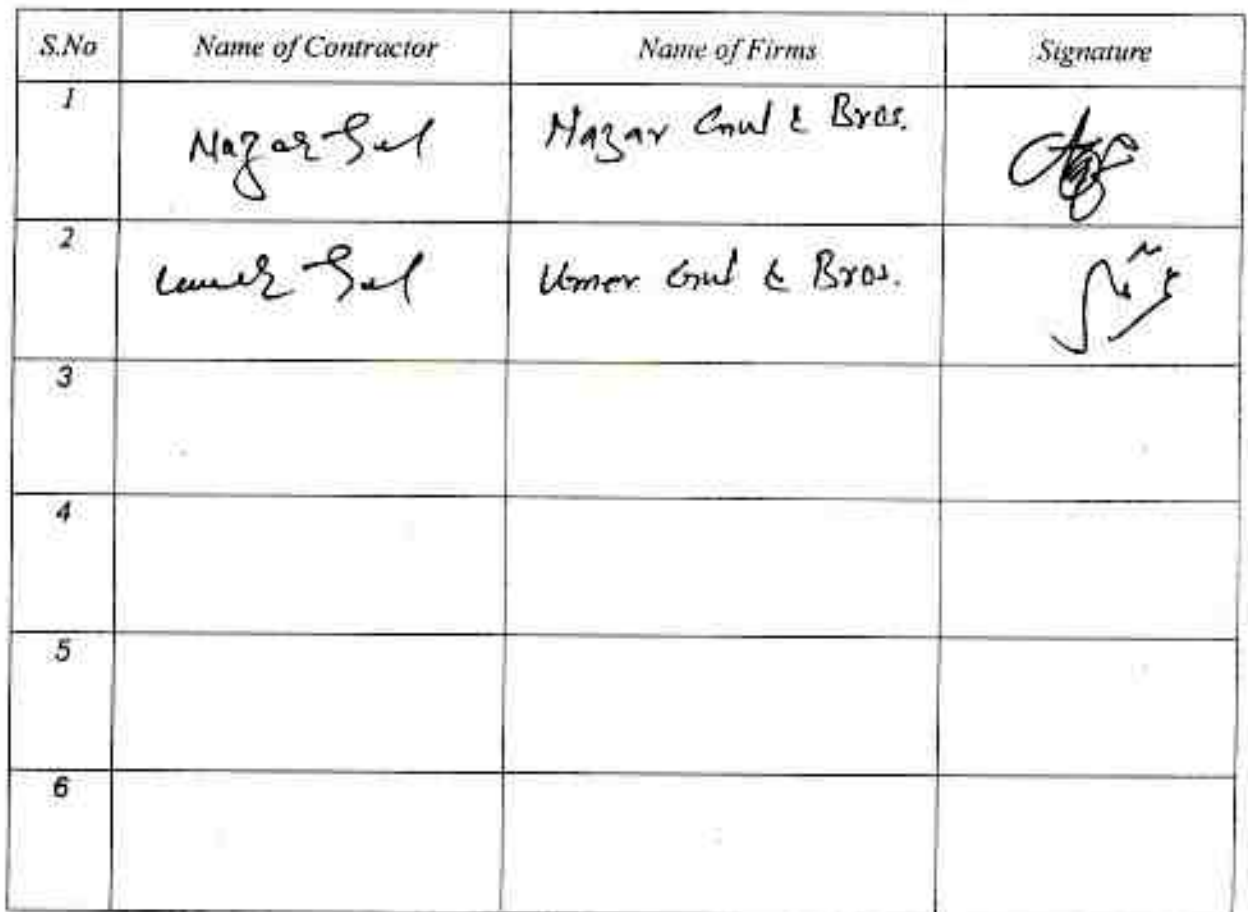 S.No Name of Contractor Name of Firms Signature
1 Nazar Gul Nazar Gul & Bros.
2 Umer Gul Umer Gul & Bros.
3
4
5
6